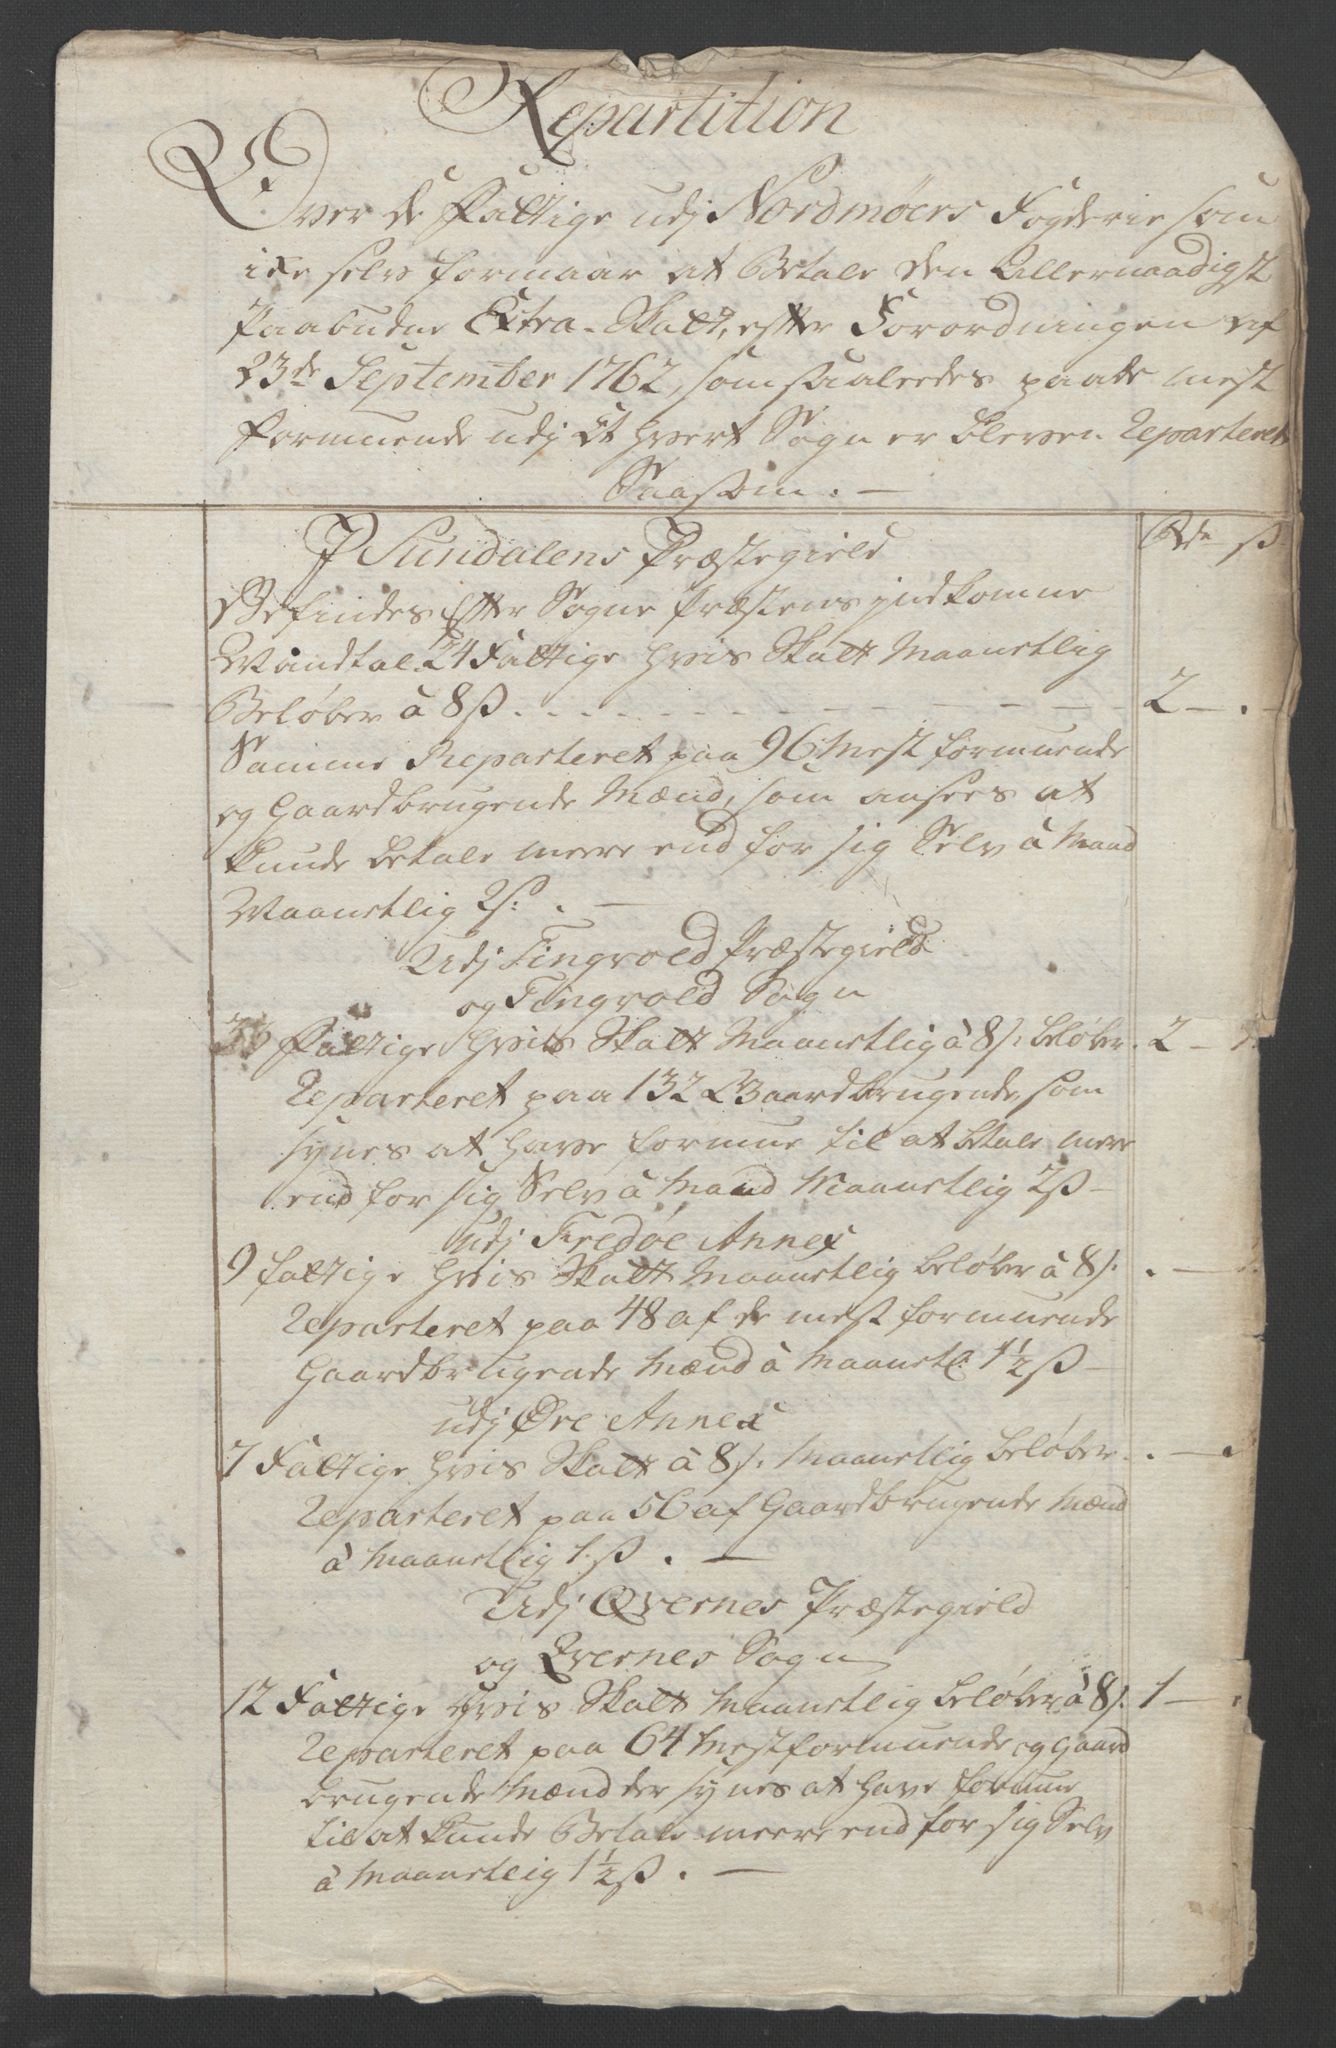 Repartition
Over de Fattige udj Nordmøers Fogderie som
icke selv formaar at Betale den Allernaadigst
Paabudne Extra-Skatt, efter Forordningen af
23de September 1762, som saaledes paa de mest
formuende udj Et hvert Sogn er bleven Reparteret
Saasom. —
Rdr ß
I Sundalens Præstegield
Befindes Efter Sogne Præstens indkomne
Mandtal 24 Fattige hvis Skatt Maanetlig
Beløber à 8ß. - - - 2 - . -
Samme Reparteret paa 96 Mest formuende
og Gaardbrugende Mænd, som ansees at
kunde betale meere end for sig Selv à Mand
Maanetlig 2ß: . —
Udj Tingvold Præstegield
og Tingvold Sogn
33 Fattige hvis Skatt Maanetlig à 8ß. beløber. 2 -
Reparteret paa 132 Gaardbrugende, som
synes at have formue til at betale mere
end for sig Selv à Mand Maanetlig 2ß —
udj Fredøe Annex
9 fattige hvis Skatt Maanetlig beløber à 8ß. . —
Reparteret paa 48 af de mest formuende
Gaardbrugende Mænd à Maanetl. 1½ß —
udj Øre Annex
7 Fattige hvis Skatt à 8ß. Maanetlig beløber. . —
Reparteret paa 56 af Gaardbrugende Mænd
à Maanetlig 1.ß . —
Udj Qvernes Præstegield
og Qvernes Sogn
12 Fattige hvis Skatt Maanetlig beløber à 8ß. 1 —
Reparteret paa 64 Mestformuende og Gaard
brugende Mænd der synes at have formue
til at kunde Betale meere end for sig Selv
à Maanetlig 1½ß . —